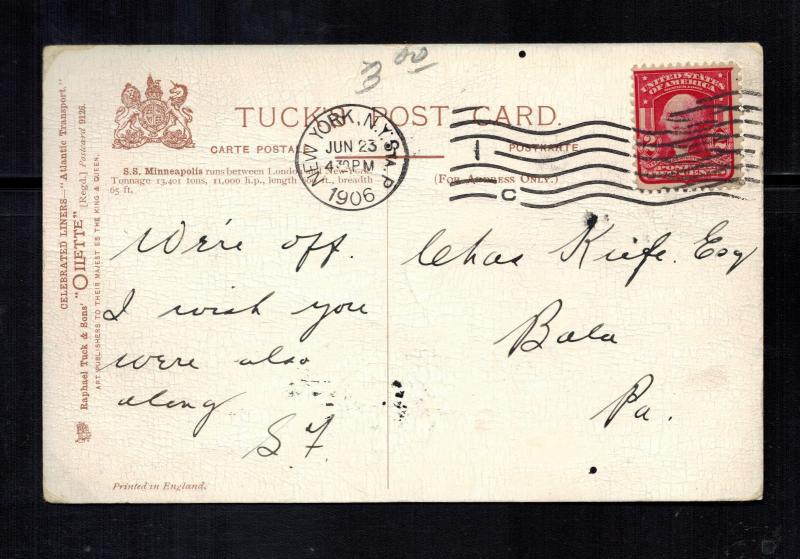 3 00
TUCK'S POST CARD.
CARTE POSTALE POSTKARTE
S.S. Minneapolis runs between London and New York
Tonnage 13,401 tons, 11,000 h.p., length 600 ft., breadth
65 ft.
(FOR ADDRESS ONLY.)
NEW YORK, N.Y. STA. P
JUN 23
4 30 PM
1906
1
C
UNITED STATES
OF AMERICA
We're off.
I wish you
were also
along
S. F.
Chas Kiefe. Esq
Bala
Pa.
CELEBRATED LINERS—"Atlantic Transport."
Raphael Tuck & Sons' "OILETTE" [Regd.] Postcard 9126.
ART PUBLISHERS TO THEIR MAJESTIES THE KING & QUEEN.
Printed in England.